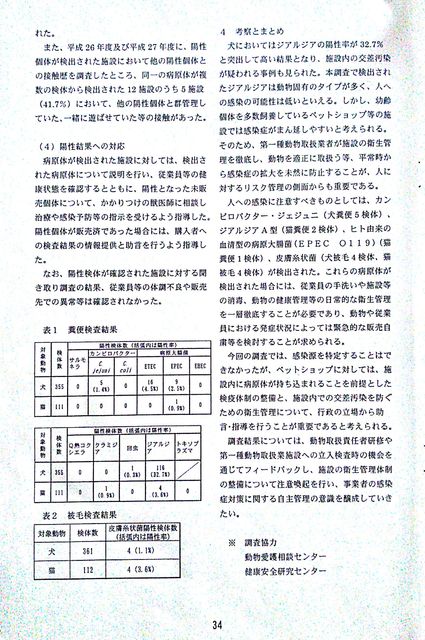 れた。
また、平成26年度及び平成27年度に、陽性
個体が検出された施設において他の陽性個体と
の接触歴を調査したところ、同一の病原体が複
数の検体から検出された12施設のうち5施設
（41.7%）において、他の陽性個体と群管理し
ていた、一緒に遊ばせていた等の接触があった。
（4）陽性結果への対応
病原体が検出された施設に対しては、検出さ
れた病原体について説明を行い、従業員等の健
康状態を確認するとともに、陽性となった未販
売個体について、かかりつけの獣医師に相談し
治療や感染予防等の指示を受けるよう指導した。
陽性個体が販売済であった場合には、購入者へ
の検査結果の情報提供と助言を行うよう指導し
た。
なお、陽性検体が確認された施設に対する聞
き取り調査の結果、従業員等の体調不良や販売
先での異常等は確認されなかった。
表1 糞便検査結果
対象動物 検体数 陽性検体数（括弧内は陽性率）
サルモネラ カンピロバクター 病原大腸菌
C. jejuni C. coli ETEC EPEC EHEC
犬 355 0 5 (1.4%) 0 16 (4.5%) 9 (2.5%) 0
猫 111 0 0 0 0 1 (0.9%) 0
対象動物 検体数 陽性検体数（括弧内は陽性率）
Q熱コクシエラ クラミジア 回虫 ジアルジア トキソプラズマ
犬 355 0 0 1 (0.3%) 116 (32.7%)
猫 111 0 1 (0.9%) 0 4 (3.6%) 0
表2 被毛検査結果
対象動物 検体数 皮膚糸状菌陽性検体数（括弧内は陽性率）
犬 361 4 (1.1%)
猫 112 4 (3.6%)
4 考察とまとめ
犬においてはジアルジアの陽性率が32.7%
と突出して高い結果となり、施設内の交差汚染
が疑われる事例も見られた。本調査で検出され
たジアルジアは動物固有のタイプが多く、人へ
の感染の可能性は低いといえる。しかし、幼齢
個体を多数飼養しているペットショップ等の施
設では感染症がまん延しやすいと考えられる。
そのため、第一種動物取扱業者が施設の衛生管
理を徹底し、動物を適正に取扱う等、平常時か
ら感染症の拡大を未然に防止することが、人に
対するリスク管理の側面からも重要である。
人への感染に注意すべきものとしては、カン
ピロバクター・ジェジュニ（犬糞便5検体）、
ジアルジアA型（猫糞便2検体）、ヒト由来の
血清型の病原大腸菌（EPEC O119）（猫
糞便1検体）、皮膚糸状菌（犬被毛4検体、猫
被毛4検体）が検出された。これらの病原体が
検出された場合には、従業員の手洗いや施設等
の消毒、動物の健康管理等の日常的な衛生管理
を一層徹底することが必要であり、動物や従業
員における発症状況によっては緊急的な販売自
粛等を検討することが求められる。
今回の調査では、感染源を特定することはで
きなかったが、ペットショップに対しては、施
設内に病原体が持ち込まれることを前提とした
検疫体制の整備と、施設内での交差汚染を防ぐ
ための衛生管理について、行政の立場から助
言・指導を行うことが重要であると考えられる。
調査結果については、動物取扱責任者研修や
第一種動物取扱業施設への立入検査時の機会を
通じてフィードバックし、施設の衛生管理体制
の整備について注意喚起を行い、事業者の感染
症対策に関する自主管理の意識を醸成していき
たい。
※ 調査協力
動物愛護相談センター
健康安全研究センター
34